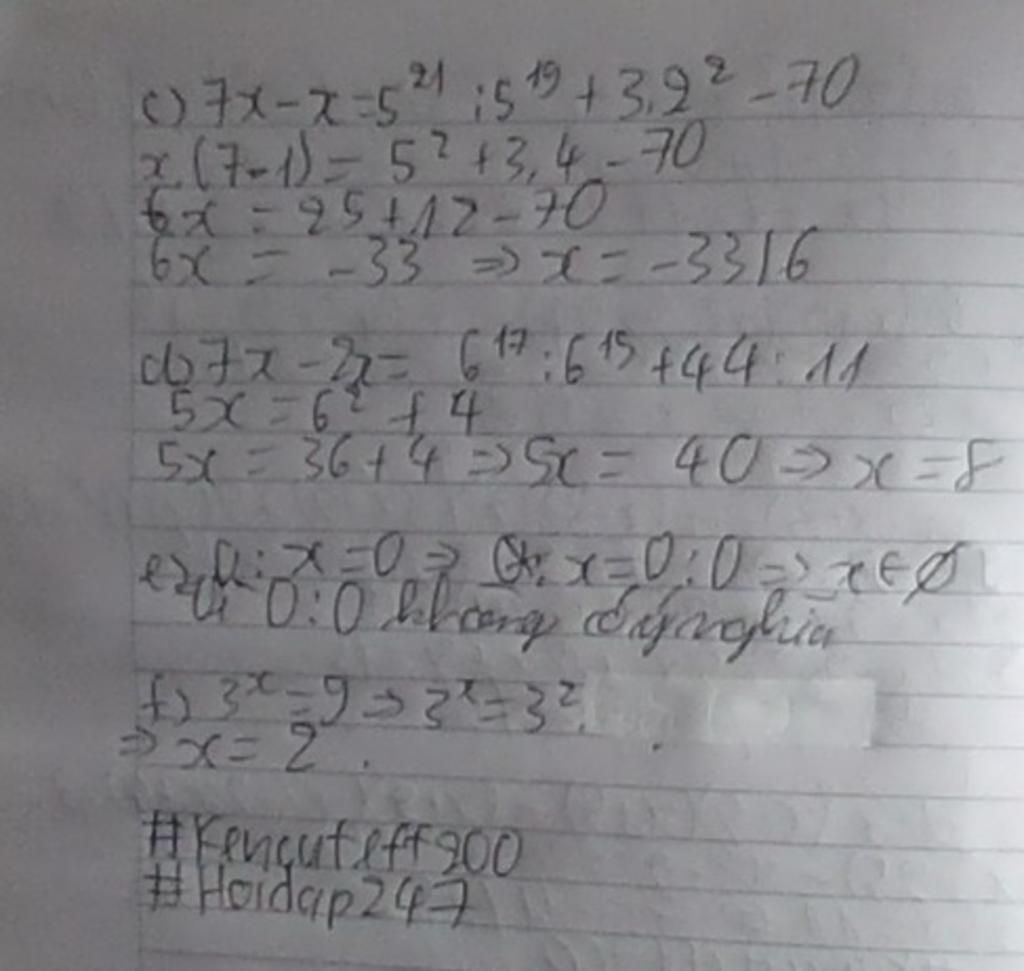 c) 7x - x = 5²¹ : 5¹⁹ + 3.2² - 70
x.(7-1) = 5² + 3.4 - 70
6x = 25 + 12 - 70
6x = -33 => x = -33/6
d) 7x - 2x = 6¹⁷ : 6¹⁵ + 44 : 11
5x = 6² + 4
5x = 36 + 4 => 5x = 40 => x = 8
e) 0 : x = 0 => x = 0 : 0 => x ∈ ∅
0 : 0 không có ý nghĩa
f) 3ˣ = 9 => 3ˣ = 3².
=> x = 2.
#Kencuteff900
#Hoidap247